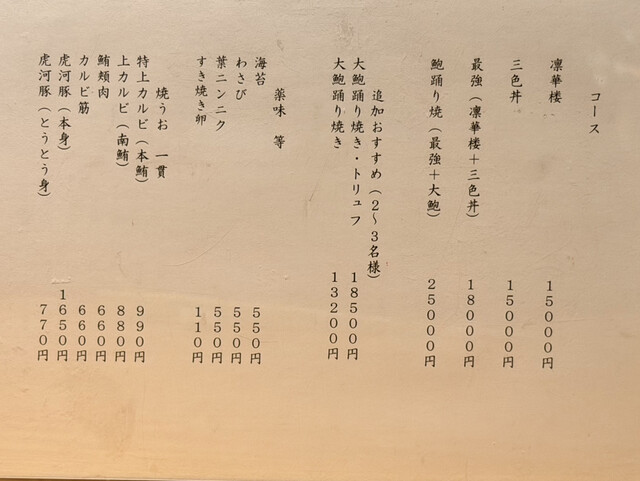 コース
凛華楼 15000円
三色丼 15000円
最強(凛華楼+三色丼) 18000円
鮑踊り焼(最強+大鮑) 25000円
追加おすすめ(2~3名様)
大鮑踊り焼き・トリュフ 18500円
大鮑踊り焼き 13200円
薬味 等
海苔 550円
わさび 550円
葉ニンニク 550円
すき焼き卵 110円
焼うお 一貫
特上カルビ(本鮪) 990円
上カルビ(南鮪) 880円
鮪頬肉 660円
カルビ筋 660円
虎河豚(本身) 1650円
虎河豚(とうとう身) 770円